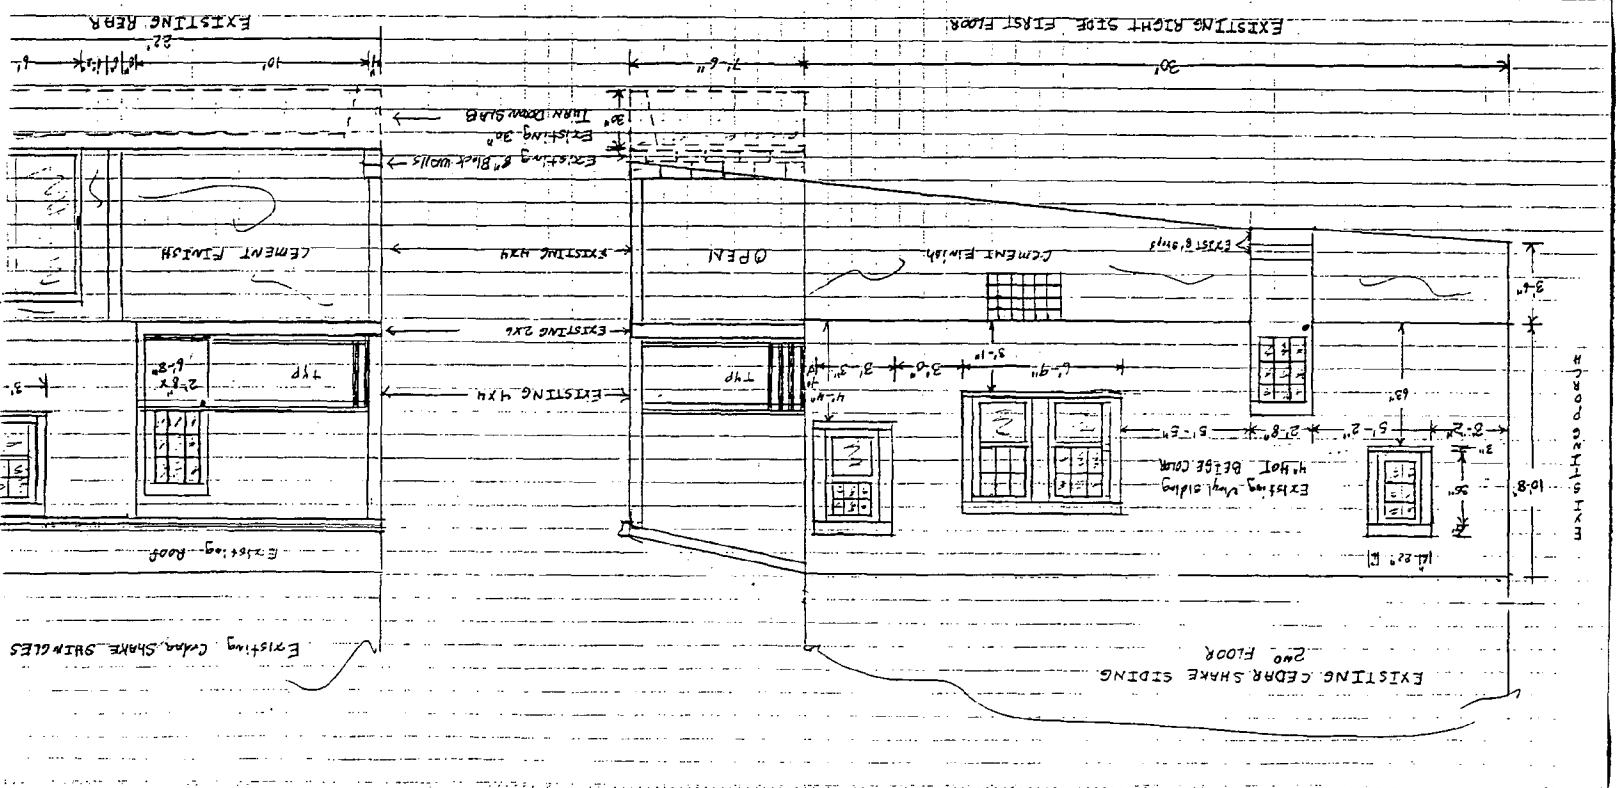 EXISTING CEDAR SHAKE SIDING
2ND FLOOR
Existing Cedar SHAKE SHINGLES
Existing Roof
22"
2"
36"
3"
10'8"
EXISTING
Existing Vinyl siding
4" HOT BEIGE COLOR
2'-2"
5'-2"
2'-8"
5'-5"
63"
6'-9"
3'-0"
3'-3"
5'-1"
4'-4"
TYP
EXISTING 4X4
TYP
2'-8" X
6'-8"
3'
EXISTING 2X6
3'-6"
EXIST 8" STEPS
CEMENT FINISH
OPEN
EXISTING 4X4
CEMENT FINISH
Existing 8" Block walls
Existing 30"
TURN DOWN SLAB
30"
30'
7'-6"
4"
10'
6'
22'
EXISTING RIGHT SIDE FIRST FLOOR
EXISTING REAR